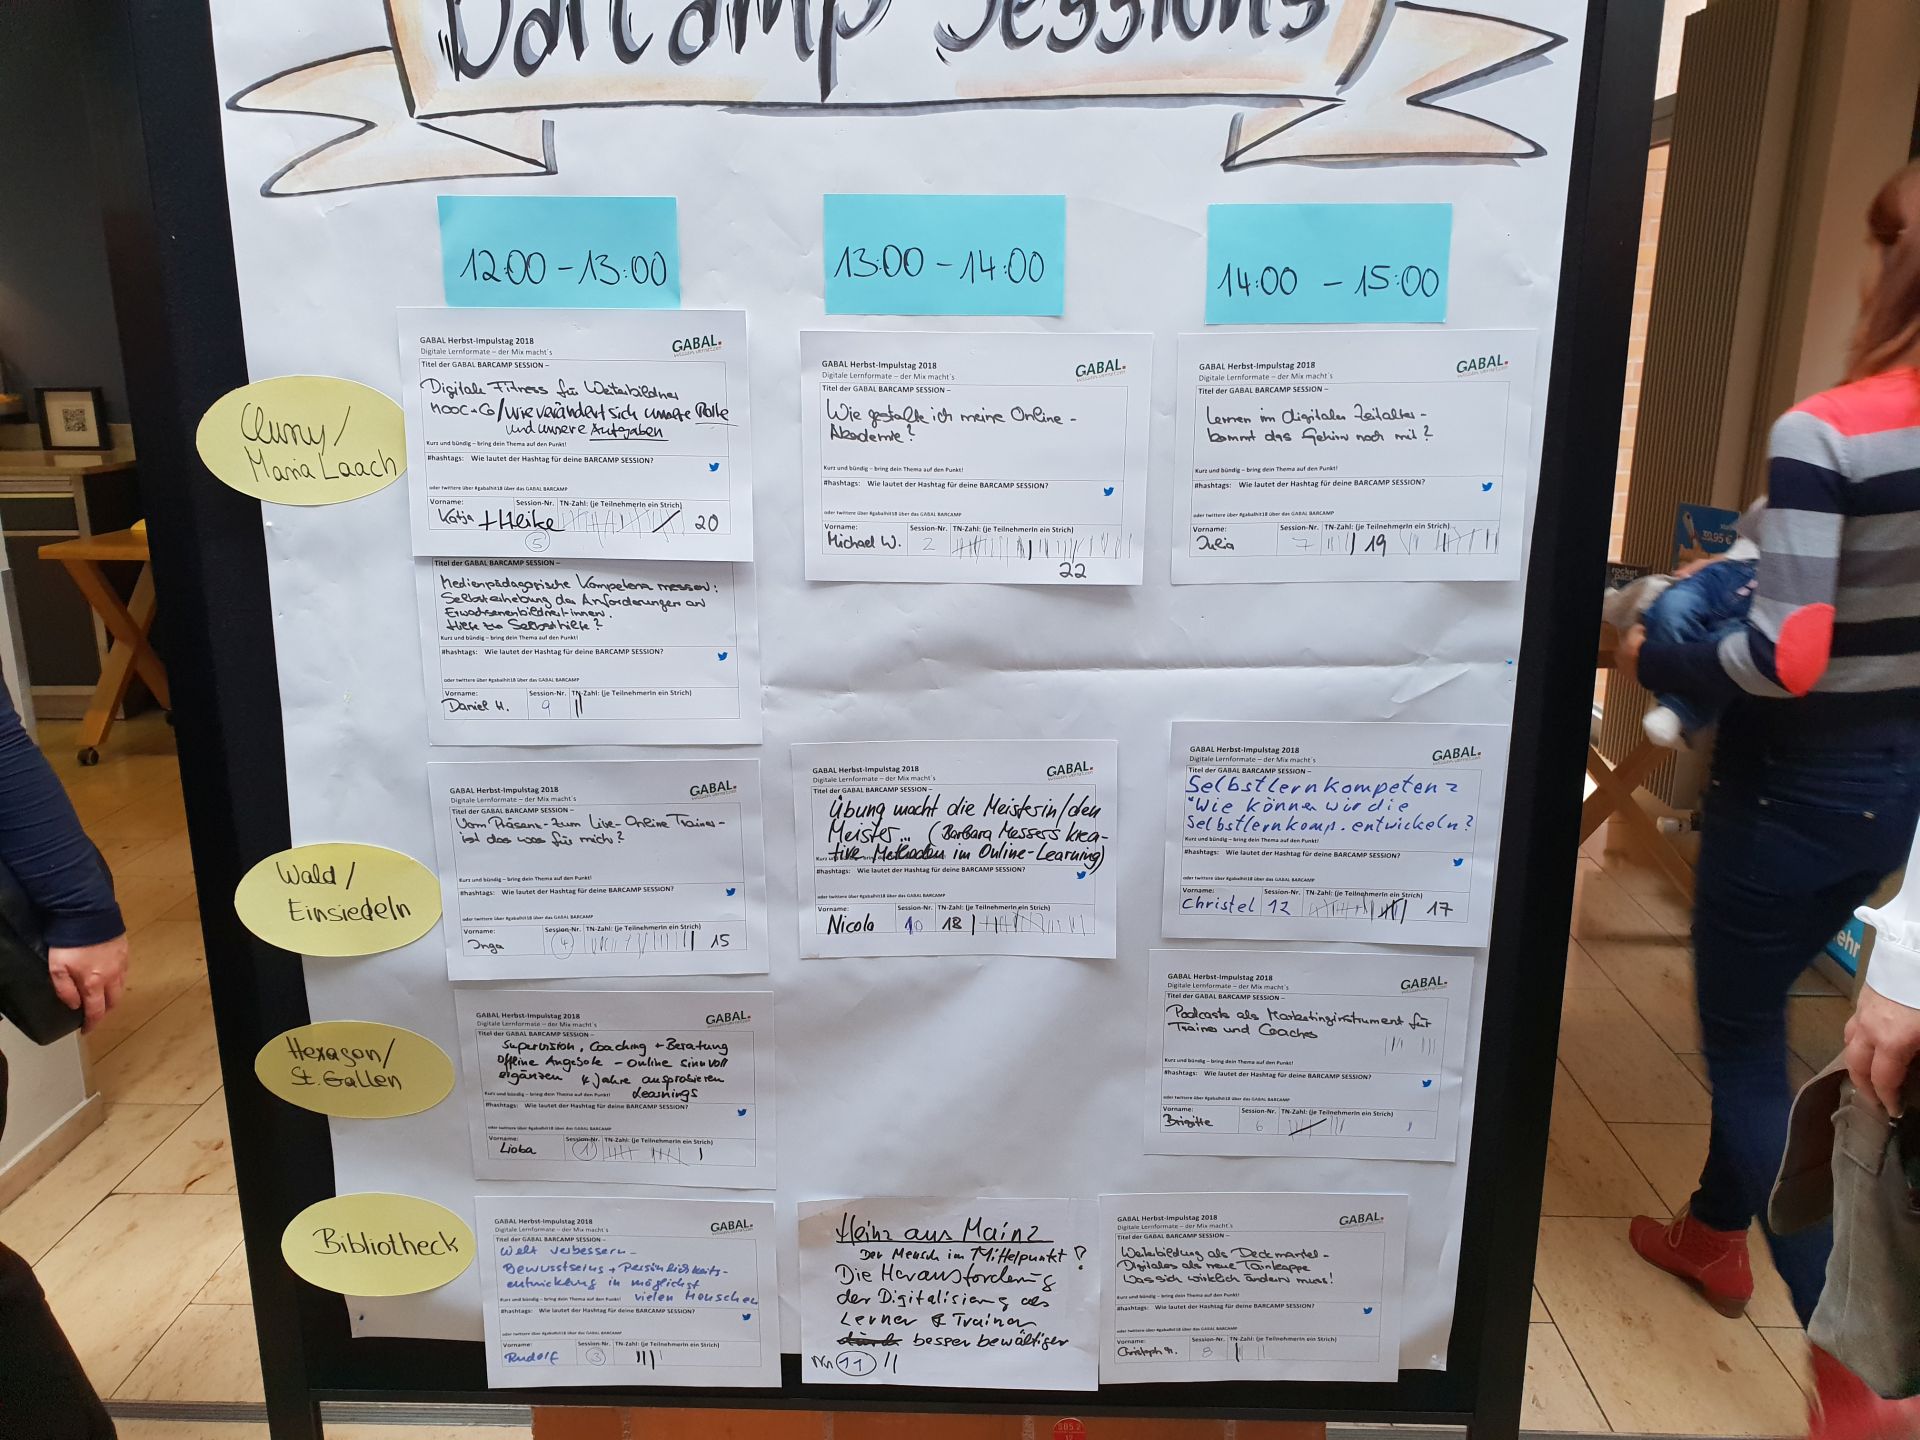 BarCamp Sessions
12:00 - 13:00
13:00 - 14:00
14:00 - 15:00
Cluny /
Maria Laach
GABAL Herbst-Impulstag 2018
GABAL.
Digitale Lernformate – der Mix macht´s
Titel der GABAL BARCAMP SESSION –
Digitale Fitness für Weiterbildner
MOOC + Co / wie verändert sich unsere Rolle
und unsere Aufgaben
Kurz und bündig – bring dein Thema auf den Punkt!
#hashtags: Wie lautet der Hashtag für deine BARCAMP SESSION?
oder twittere über #gabalhit18 über das GABAL BARCAMP
Vorname: Session-Nr. TN-Zahl: (je TeilnehmerIn ein Strich)
Katja + Heike 5 20
GABAL Herbst-Impulstag 2018
GABAL.
Digitale Lernformate – der Mix macht´s
Titel der GABAL BARCAMP SESSION –
Wie gestalte ich meine Online-
Akademie?
Kurz und bündig – bring dein Thema auf den Punkt!
#hashtags: Wie lautet der Hashtag für deine BARCAMP SESSION?
oder twittere über #gabalhit18 über das GABAL BARCAMP
Vorname: Session-Nr. TN-Zahl: (je TeilnehmerIn ein Strich)
Michael W. 2
22
GABAL Herbst-Impulstag 2018
GABAL.
Digitale Lernformate – der Mix macht´s
Titel der GABAL BARCAMP SESSION –
Lernen im digitalen Zeitalter -
kommt das Gehirn noch mit?
Kurz und bündig – bring dein Thema auf den Punkt!
#hashtags: Wie lautet der Hashtag für deine BARCAMP SESSION?
oder twittere über #gabalhit18 über das GABAL BARCAMP
Vorname: Session-Nr. TN-Zahl: (je TeilnehmerIn ein Strich)
Julia 7 19
Titel der GABAL BARCAMP SESSION –
Medienpädagogische Kompetenz messen:
Selbsterhebung der Anforderungen an
Erwachsenenbildner:innen.
Hilfe zur Selbsthilfe?
Kurz und bündig – bring dein Thema auf den Punkt!
#hashtags: Wie lautet der Hashtag für deine BARCAMP SESSION?
oder twittere über #gabalhit18 über das GABAL BARCAMP
Vorname: Session-Nr. TN-Zahl: (je TeilnehmerIn ein Strich)
Daniel H. 9
Wald /
Einsiedeln
GABAL Herbst-Impulstag 2018
GABAL.
Digitale Lernformate – der Mix macht´s
Titel der GABAL BARCAMP SESSION –
Vom Präsenz- zum Live-Online Trainer -
ist das was für mich?
Kurz und bündig – bring dein Thema auf den Punkt!
#hashtags: Wie lautet der Hashtag für deine BARCAMP SESSION?
oder twittere über #gabalhit18 über das GABAL BARCAMP
Vorname: Session-Nr. TN-Zahl: (je TeilnehmerIn ein Strich)
Inga 4 15
GABAL Herbst-Impulstag 2018
GABAL.
Digitale Lernformate – der Mix macht´s
Titel der GABAL BARCAMP SESSION –
Übung macht die Meisterin/den
Meister... (Barbara Messers krea-
tive Methoden im Online-Learning)
#hashtags: Wie lautet der Hashtag für deine BARCAMP SESSION?
oder twittere über #gabalhit18 über das GABAL BARCAMP
Vorname: Session-Nr. TN-Zahl: (je TeilnehmerIn ein Strich)
Nicola 10 18
GABAL Herbst-Impulstag 2018
GABAL.
Digitale Lernformate – der Mix macht´s
Titel der GABAL BARCAMP SESSION –
Selbstlernkompetenz
"Wie können wir die
Selbstlernkomp. entwickeln?
Kurz und bündig – bring dein Thema auf den Punkt!
#hashtags: Wie lautet der Hashtag für deine BARCAMP SESSION?
oder twittere über #gabalhit18 über das GABAL BARCAMP
Vorname: Session-Nr. TN-Zahl: (je TeilnehmerIn ein Strich)
Christel 12 17
Hexagon/
St. Gallen
GABAL Herbst-Impulstag 2018
GABAL.
Digitale Lernformate – der Mix macht´s
Titel der GABAL BARCAMP SESSION –
Supervision, Coaching + Beratung
Offline Angebote - online sinnvoll
ergänzen 4 Jahre ausprobieren
Learnings
Kurz und bündig – bring dein Thema auf den Punkt!
#hashtags: Wie lautet der Hashtag für deine BARCAMP SESSION?
oder twittere über #gabalhit18 über das GABAL BARCAMP
Vorname: Session-Nr. TN-Zahl: (je TeilnehmerIn ein Strich)
Lioba 1
GABAL Herbst-Impulstag 2018
GABAL.
Digitale Lernformate – der Mix macht´s
Titel der GABAL BARCAMP SESSION –
Podcasts als Marketinginstrument für
Trainer und Coaches
Kurz und bündig – bring dein Thema auf den Punkt!
#hashtags: Wie lautet der Hashtag für deine BARCAMP SESSION?
oder twittere über #gabalhit18 über das GABAL BARCAMP
Vorname: Session-Nr. TN-Zahl: (je TeilnehmerIn ein Strich)
Brigitte 6
Bibliotheck
GABAL Herbst-Impulstag 2018
GABAL.
Digitale Lernformate – der Mix macht´s
Titel der GABAL BARCAMP SESSION –
Welt verbessern -
Bewusstseins + Persönlichkeits-
entwicklung in möglichst
vielen Menschen
Kurz und bündig – bring dein Thema auf den Punkt!
#hashtags: Wie lautet der Hashtag für deine BARCAMP SESSION?
oder twittere über #gabalhit18 über das GABAL BARCAMP
Vorname: Session-Nr. TN-Zahl: (je TeilnehmerIn ein Strich)
Rudolf 3
Heinz aus Mainz
Der Mensch im Mittelpunkt?
Die Herausforderung
der Digitalisierung als
Lerner & Trainer
durch besser bewältigen
Nr. 11
GABAL Herbst-Impulstag 2018
GABAL.
Digitale Lernformate – der Mix macht´s
Titel der GABAL BARCAMP SESSION –
Weiterbildung als Deckmantel -
Digitales als neue Tarnkappe
Was sich wirklich ändern muss!
Kurz und bündig – bring dein Thema auf den Punkt!
#hashtags: Wie lautet der Hashtag für deine BARCAMP SESSION?
oder twittere über #gabalhit18 über das GABAL BARCAMP
Vorname: Session-Nr. TN-Zahl: (je TeilnehmerIn ein Strich)
Christoph M. 8